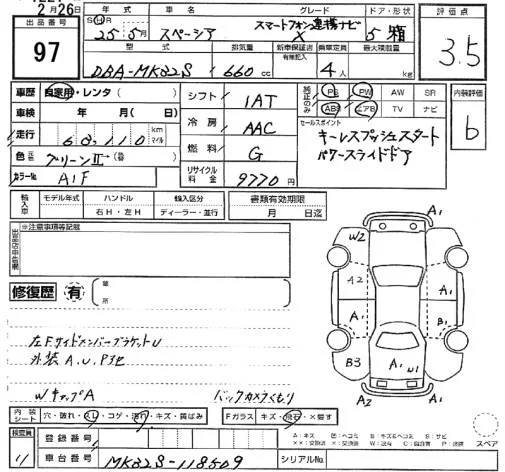 2月26日
出品番号
97
年式
車名
グレード
ドア・形状
評価点
S H 25年 5月
スペーシア
スマートフォン連携ナビ
X
5 箱
3.5
型式
排気量
新車保証書
有無記入
乗車定員
最大積載量
DBA-MK32S
660 cc
4人
kg
車歴
自家用・レンタ
車検
年 月( 日)
走行
68,110
km
マイル
色
グリーンII→
カラーNo
A1F
シフト
1AT
冷房
AAC
燃料
G
リサイクル料金
9770
円
純正のみ
PS
PW
AW
SR
ABS
エアB
TV
ナビ
内装評価
b
セールスポイント
キーレスプッシュスタート
パワースライドドア
輸入車
モデル年式
ハンドル
輸入区分
書類有効期限
右H・左H
ディーラー・並行
月 日迄
※注意事項等記載
出品店申告欄
修復歴
有
箇所
左Fサイドメンバーブラケットひ
外装A.U.P他
WキャップA
バックカメラくもり
A1
W2
A2
A1
A1
A1
B1
B3
A1
W1
A2
A1
内装
シート
穴・破れ・スレ・コゲ・汚れ・キズ・黄ばみ
Fガラス
キズ・飛石・×要す
検査員
登録番号
車台番号
MK32S-118509
シリアルNo.
A:キズ
B:キズ&ヘコミ
S:サビ
スペア